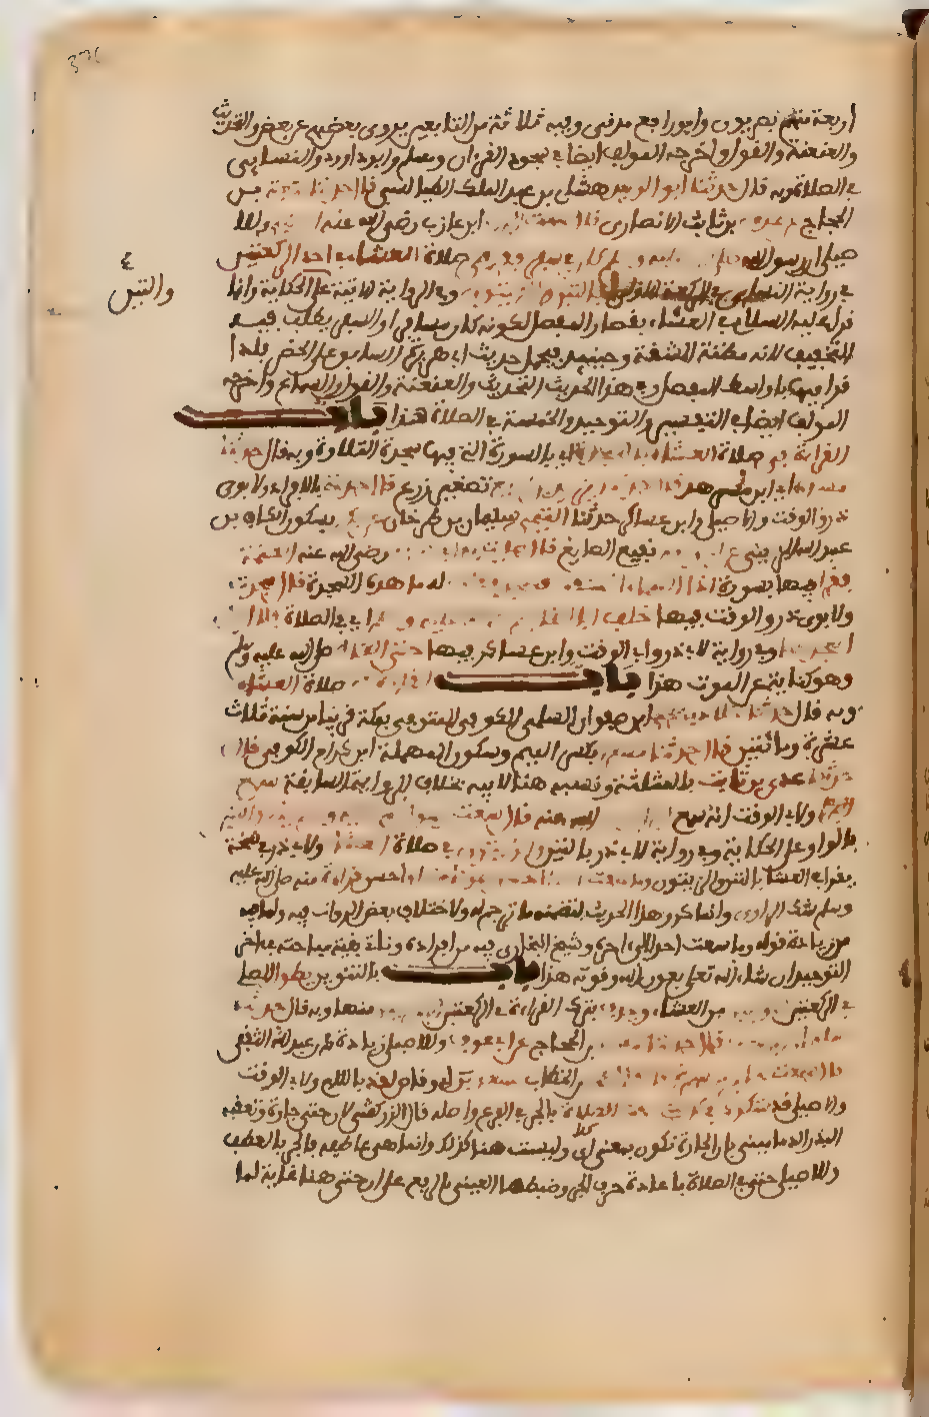 اربعة منهم بصريون وابو رافع مدني وفيه ثلاثة من التابعين يروي بعضهم عن بعض والتحديث
والعنعنة والقول واخرجه المولف ايضا في سجود القرءان ومسلم وابو داود والنسايي
في الصلاة وبه قال حدثنا ابو الوليد هشام بن عبد الملك الطيالسي قال حدثنا شعبة بن
الحجاج عن عدي بن ثابت الانصاري قال سمعت البراء ابن عازب رضي الله عنه
صلى الله عليه وسلم كان في سفر فقرا في صلاة العشاء في احدى الركعتين
في رواية النسايي في الركعة الاولى بالتين والزيتون وفي الرواية الاتية على الحكاية وانما
والتين
قرا عليه السلام في العشاء بقصار المفصل لكونه كان مسافرا والسفر يطلب فيه
التخفيف لانه مظنة المشقة وحينئذ فيحمل حديث ابي هريرة السابق على الحضر فلذا
قرا فيها باواسط المفصل وفي هذا الحديث التحديث والعنعنة والقول والسماع واخرجه
المولف ايضا في التفسير والتوحيد والخمسة في الصلاة هذا باب
القراءة في صلاة العشاء بالسجدة اي بالسورة التي فيها سجدة التلاوة وبه قال حدثنا
مسدد اي ابن مسرهد قال حدثنا يزيد بن زريع قال حدثنا بالافراد ولابوي
ذر والوقت والاصيلي وابن عساكر حدثنا التيمي سليمان بن طرخان عن بكر بسكون الكاف بن
عبد الله المزني عن ابي رافع نفيع الصايغ قال صليت مع ابي هريرة رضي الله عنه العتمة
فقرا فيها بسورة اذا السماء انشقت فسجد فقلت له ما هذه السجدة قال سجدت
ولابوي ذر والوقت فيها خلف ابي القاسم صلى الله عليه وسلم في الصلاة فلا ازال
اسجد بها وفي رواية لابي ذر وابي الوقت وابن عساكر فيها حتى القاه صلى الله عليه وسلم
وهو كناية عن الموت هذا باب القراءة في صلاة العشاء
وبه قال حدثنا خلاد بن يحيى ابن صفوان السلمي الكوفي المتوفى بمكة قريبا من سنة ثلاث
عشرة ومائتين قال حدثنا مسعر بكسر الميم وسكون المهملة ابن كدام الكوفي قال
حدثنا عدي بن ثابت بالمثلثة ونسبه هنا لابيه بخلاف الرواية السابقة سمع
البراء ولابي الوقت انه سمع الله عنه قال سمعت
بالواو على الحكاية وفي رواية لابي ذر بالتين والزيتون في صلاة العشاء ولابي ذر في نسخة
يقرا في العشاء بالتين والزيتون وما سمعت احدا احسن صوتا منه او احسن قراءة منه صلى الله عليه
وسلم شك الراوي وانما كرر هذا الحديث لتضمنه ما ترجم له ولاختلاف بعض الرواة فيه ولما فيه
من زيادة قوله وما سمعت احدا الى اخره وشيخ البخاري فيه من افراده وتاتي بقية مباحثه في اخر
التوحيد ان شاء الله تعلى بعون الله وقوته هذا باب بالتنوين يطول المصلي
في الركعتين الاوليين من العشاء ويحذف يترك القراءة في الركعتين الاخريين منها وبه قال حدثنا
سليمان بن حرب قال حدثنا شعبة بن الحجاج عن ابي عون وللاصيلي زيادة محمد بن عبد الله الثقفي
قال سمعت جابر بن سمرة قال قال عمر بن الخطاب لسعد بن ابي وقاص لقد باللام ولابي الوقت
والاصيلي قد شكوك في كل شيء حتى الصلاة بالجر في الفرع واصله قال الزركشي لان حتى جارة وتعقبه
البدر الدماميني بان الجارة تكون بمعنى الى وليست هنا كذلك وانما هي عاطفة بالجر بالعطف
وللاصيلي حتى في الصلاة باعادة حرف الجر وضبطها العيني بالرفع على ان حتى هنا غاية لما